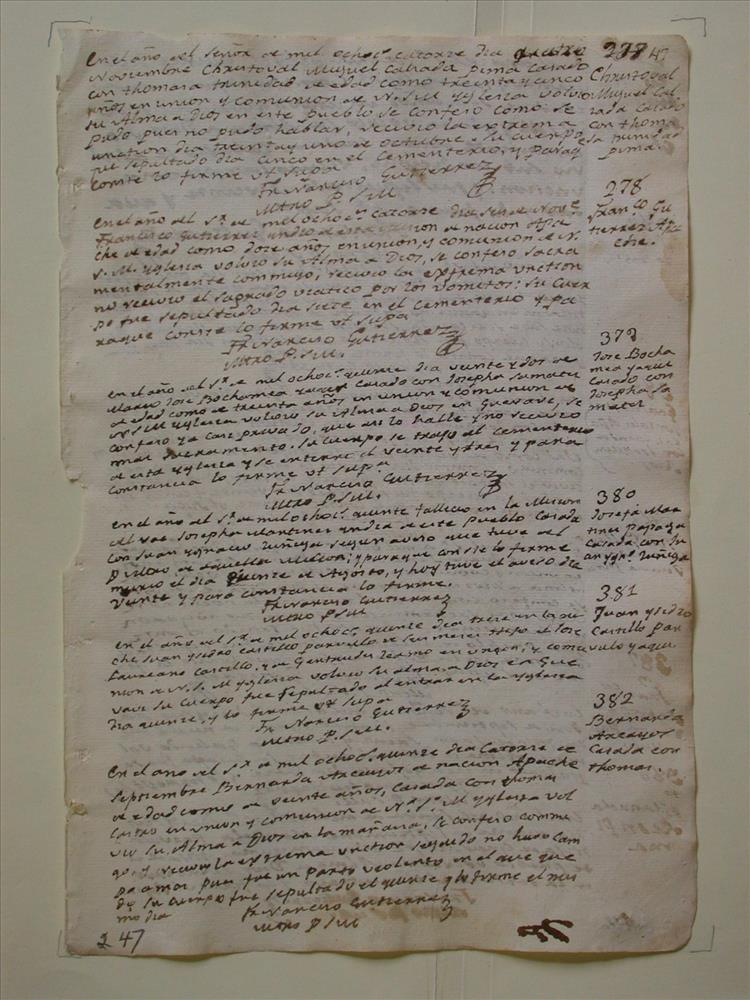 En el año del Señor de mil ochoc.s catorze dia quatro
Noviembre Christoval Miguel Calzada Pima Casado
con thomasa trinidad de edad como treinta y cinco
años en union y comunion de N. S. M. yglesia volvio
su Alma a Dios en este Pueblo se confeso como se
pudo pues no pudo hablar, recivio la extrema
unction dia treinta y uno de octubre su cuerpo
fue sepultado dia cinco en el cementerio, y para q.e
conste lo firme ut supa
Fr. Narciso Gutierrez
Mtro P. S. M.
277 47
Christoval
Miguel Cal
zada Casado
con thoma
sa trinidad
pima.
En el año del S.r de mil ochoc.s catorze dia seis de Nov.e
Francisco Gutierrez yndio de esta mision de nacion Apa
che de edad como doze años en union, y comunion de N.
S. M. yglesia volvio su Alma a Dios, se confeso sacra
mentalmente conmigo, recivio la extrema unction
no recivio el sagrado viatico por los vomitos: su cuer
po fue sepultado dia siete en el cementerio y pa
raque conste lo firme ut supa
Fr. Narciso Gutierrez
Mtro P. S. M.
278
Fran.co Gu
tierrez Apa
che.
En el año del S.r de mil ochoc.s quinze dia veinte y dos de
Marzo Jose Bochamea yaqui casado con Josepha Samater
de edad como de treinta años en union y comunion de
N. S. M. yglesia volvio su Alma a Dios en Guevave, se
confeso ya casi privado, que asi lo halle y no recivio
mas sacramento. su cuerpo se trajo al cementerio
de esta yglesia y se enterro el veinte y tres y para
constancia lo firme ut supa
Fr. Narciso Gutierrez
Mtro P. S. M.
379
Jose Bocha
mea yaqui
Casado con
Josepha Sa
mater
En el año del S.r de mil ochoc.s quinze fallecio en la Mision
del Bac Josepha Martinez yndia de este Pueblo casada
con Juan ygnacio Zuñiga segun aviso que tuve del
P. Mtro de aquella Mision; y para que conste lo firme
murio el dia quinze de Agosto, y hoy tuve el aviso dia
veinte y para constancia lo firme.
Fr. Narciso Gutierrez
Mtro P. S. M.
380
Josefa Mar
tinez papaga
casada con Ju
an ygn.o Zuñiga
En el año del S.r de mil ochoc.s quinze dia treze en la no
che Juan ysidro Castillo parvulo de seis meses hijo de Jose
Laureano Castillo, y de Gertrudis Lermo en union, y comu
nion de N. S. M. yglesia volvio su Alma a Dios en Gue
vavi su Cuerpo fue sepultado al entrar en la yglesia
dia quinze, y lo firme ut supa
Fr. Narciso Gutierrez
Mtro P. S. M.
381
Juan ysidro
Castillo Par
vulo yaqui
En el año del S.r de mil ochoc.s quinze dia Catorze de
Septiembre Bernarda Arcayos de nacion Apache
de edad como de veinte años, Casada con thomas
Castro en union y comunion de N.a S.a M. yglesia vol
vio su Alma a Dios en la mañana, se confeso conmi
go, y recivio la extrema unction seguido no huvo cam
po a mas pues fue un parto violento en el que que
do su cuerpo fue sepultado el quinze y lo firme el mis
mo dia
Fr. Narciso Gutierrez
Mtro P. S. M.
382
Bernarda
Arcayos
Casada con
thomas.
247